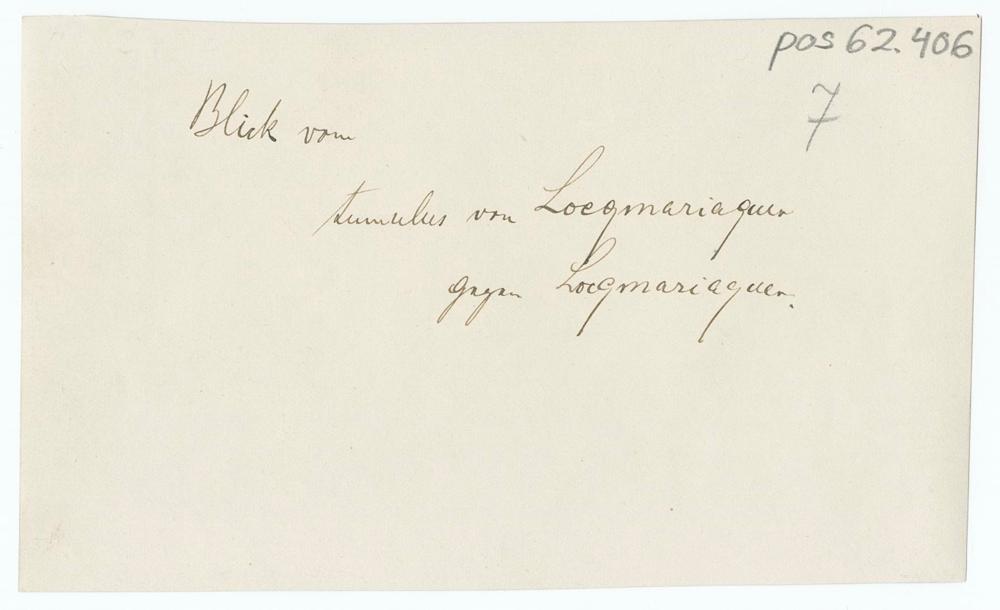 pos 62.406
7
Blick vom
tumulus von Locqmariaquer
gegen Locqmariaquer.